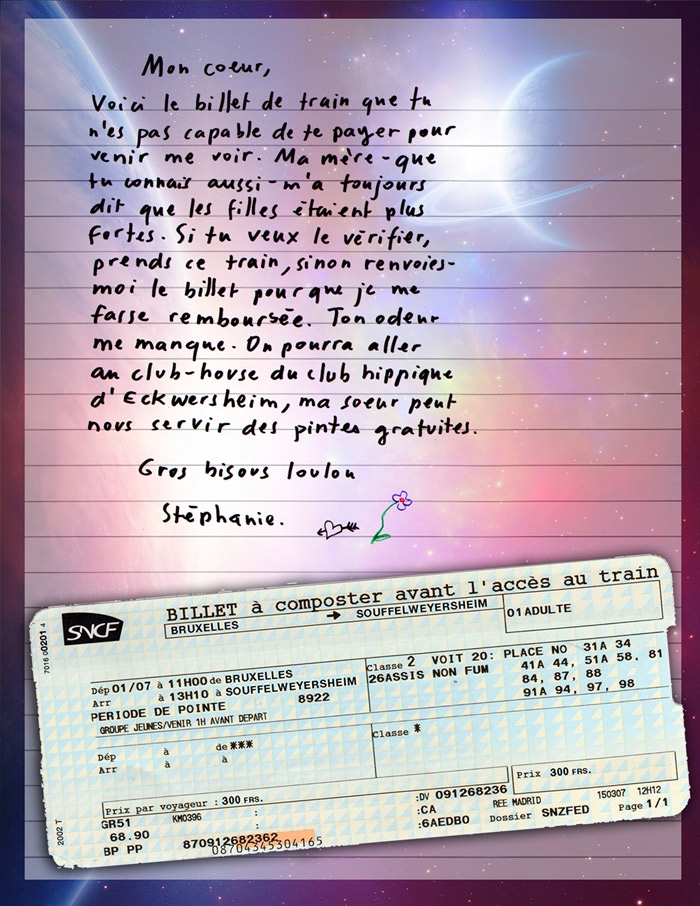 Mon coeur,
Voici le billet de train que tu
n'es pas capable de te payer pour
venir me voir. Ma mère - que
tu connais aussi - m'a toujours
dit que les filles étaient plus
fortes. Si tu veux le vérifier,
prends ce train, sinon renvoies-
moi le billet pour que je me
fasse remboursée. Ton odeur
me manque. On pourra aller
au club-house du club hippique
d'Eckwersheim, ma soeur peut
nous servir des pintes gratuites.
Gros bisous loulou
Stéphanie.
BILLET à composter avant l'accès au train
SNCF
BRUXELLES → SOUFFELWEYERSHEIM
01 ADULTE
7016 00201 4
Dép 01/07 à 11H00 de BRUXELLES
Arr à 13H10 à SOUFFELWEYERSHEIM
PERIODE DE POINTE 8922
GROUPE JEUNES/VENIR 1H AVANT DEPART
Classe 2 VOIT 20: PLACE NO 31A 34
26ASSIS NON FUM 41A 44, 51A 58, 81
84, 87, 88
91A 94, 97, 98
Dép à de ***
Arr à à
Classe *
Prix par voyageur : 300 FRS.
Prix 300 FRS.
GR51 KM0396 :
68.90 :
BP PP 870912682362
08704345304165
:DV 091268236
:CA REE MADRID 150307 12H12
:6AEDBO Dossier SNZFED Page 1/1
2002 T